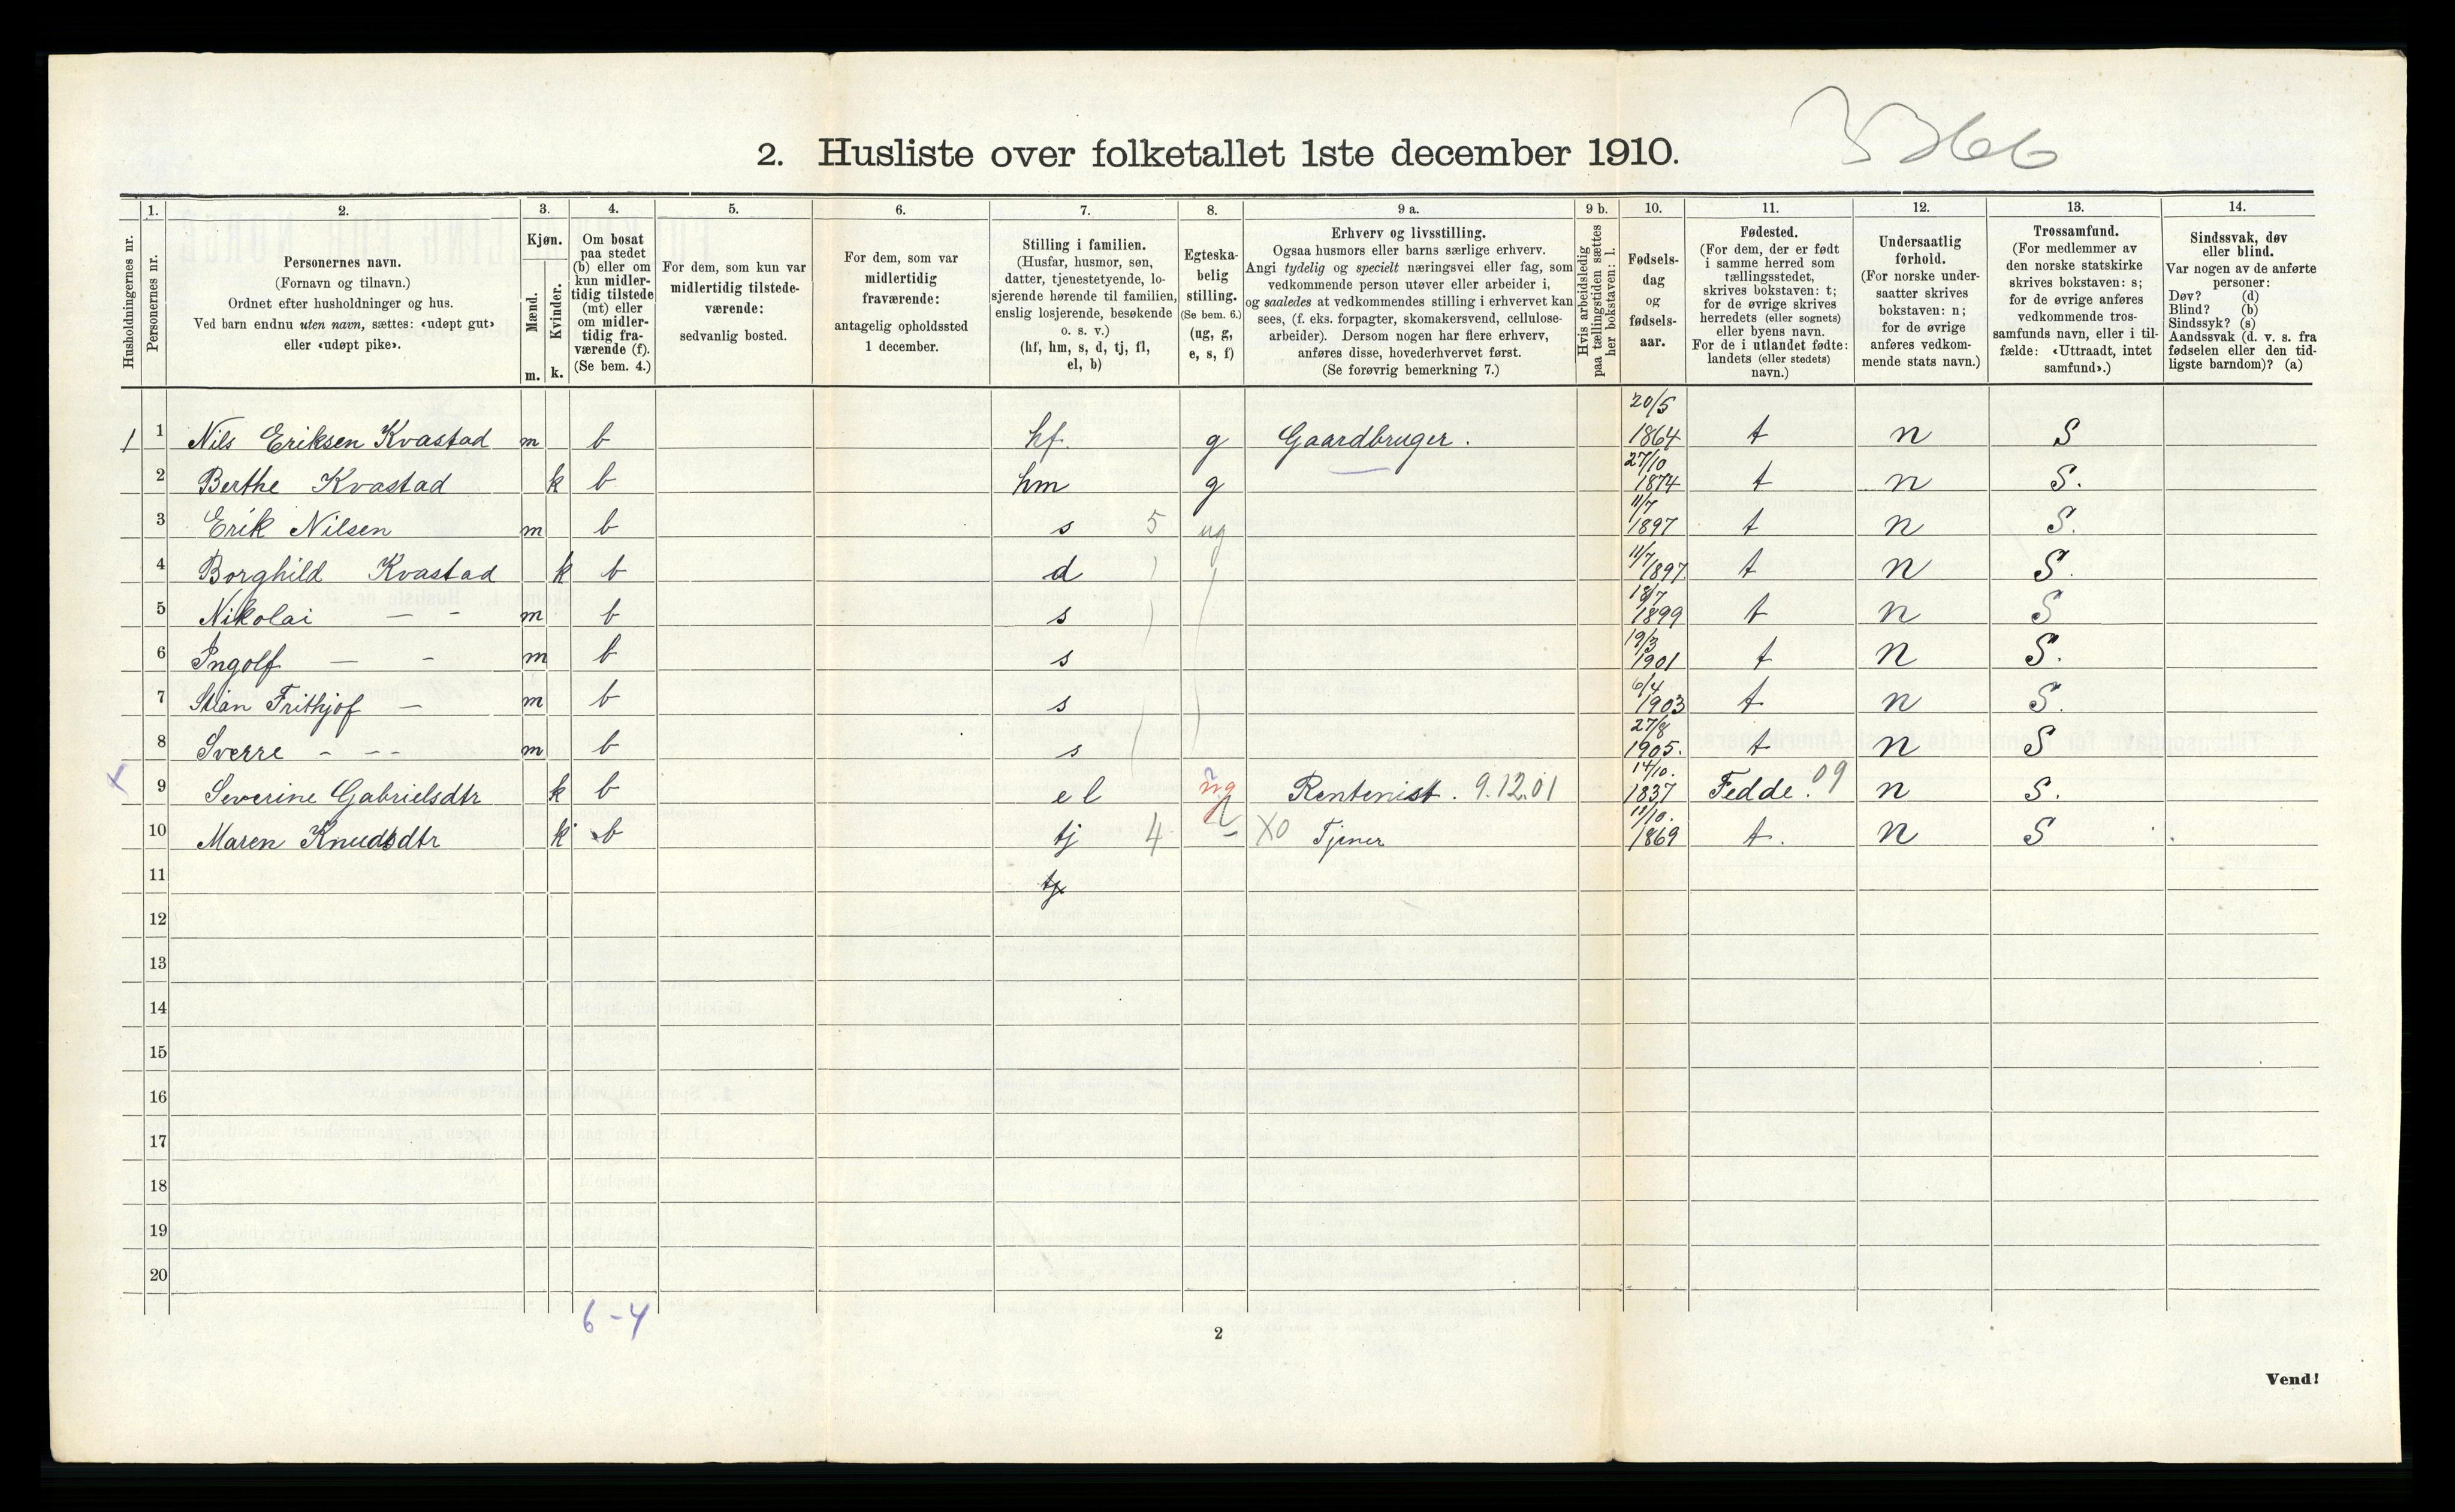 2. Husliste over folketallet 1ste december 1910.
Husholdningernes nr.
1. Personernes nr.
2. Personernes navn.
(Fornavn og tilnavn.)
Ordnet efter husholdninger og hus.
Ved barn endnu uten navn, sættes: «udøpt gut»
eller «udøpt pike».
3. Kjøn.
Mænd. m.
Kvinder. k.
4. Om bosat
paa stedet
(b) eller om
kun midler-
tidig tilstede
(mt) eller
om midler-
tidig fra-
værende (f).
(Se bem. 4.)
5. For dem, som kun var
midlertidig tilstede-
værende:
sedvanlig bosted.
6. For dem, som var
midlertidig
fraværende:
antagelig opholdssted
1 december.
7. Stilling i familien.
(Husfar, husmor, søn,
datter, tjenestetyende, lo-
sjerende hørende til familien,
enslig losjerende, besøkende
o. s. v.)
(hf, hm, s, d, tj, fl,
el, b)
8. Egteska-
belig
stilling.
(Se bem. 6.)
(ug, g,
e, s, f)
9 a. Erhverv og livsstilling.
Ogsaa husmors eller barns særlige erhverv.
Angi tydelig og specielt næringsvei eller fag, som
vedkommende person utøver eller arbeider i,
og saaledes at vedkommendes stilling i erhvervet kan
sees, (f. eks. forpagter, skomakersvend, cellulose-
arbeider). Dersom nogen har flere erhverv,
anføres disse, hovederhvervet først.
(Se forøvrig bemerkning 7.)
9 b. Hvis arbeidsledig
paa tællingstiden sættes
her bokstaven: l.
10. Fødsels-
dag
og
fødsels-
aar.
11. Fødested.
(For dem, der er født
i samme herred som
tællingsstedet,
skrives bokstaven: t;
for de øvrige skrives
herredets (eller sognets)
eller byens navn.
For de i utlandet fødte:
landets (eller stedets)
navn.)
12. Undersaatlig
forhold.
(For norske under-
saatter skrives
bokstaven: n;
for de øvrige
anføres vedkom-
mende stats navn.)
13. Trossamfund.
(For medlemmer av
den norske statskirke
skrives bokstaven: s;
for de øvrige anføres
vedkommende tros-
samfunds navn, eller i til-
fælde: «Uttraadt, intet
samfund».)
14. Sindssvak, døv
eller blind.
Var nogen av de anførte
personer:
Døv? (d)
Blind? (b)
Sindssyk? (s)
Aandssvak (d. v. s. fra
fødselen eller den tid-
ligste barndom)? (a)
1 1 Nils Eriksen Kvastad m b hf. g Gaardbruger. 20/5 1864 t n S
2 Berthe Kvastad k b hm g 27/10 1874 t n S.
3 Erik Nilsen m b s 5 ug 11/7 1897 t n S.
4 Borghild Kvastad k b d 11/7 1897 t n S.
5 Nikolai — - m b s 18/7 1899 t n S
6 Ingolf — - m b s 19/3 1901 t n S.
7 Stian Frithjof — m b s 6/4 1903 t n S.
8 Sverre - -- m b s 27/8 1905. t n S
x 9 Severine Gabrielsdtr k b el ug Rentenist. 9.12.01 14/10. 1837 Fedde. 09 n S.
10 Maren Knudsdtr k b tj 4 - XO Tjener 11/10. 1869 t. n S
11 tj
12
13
14
15
16
17
18
19
20
6-4
2
Vend!